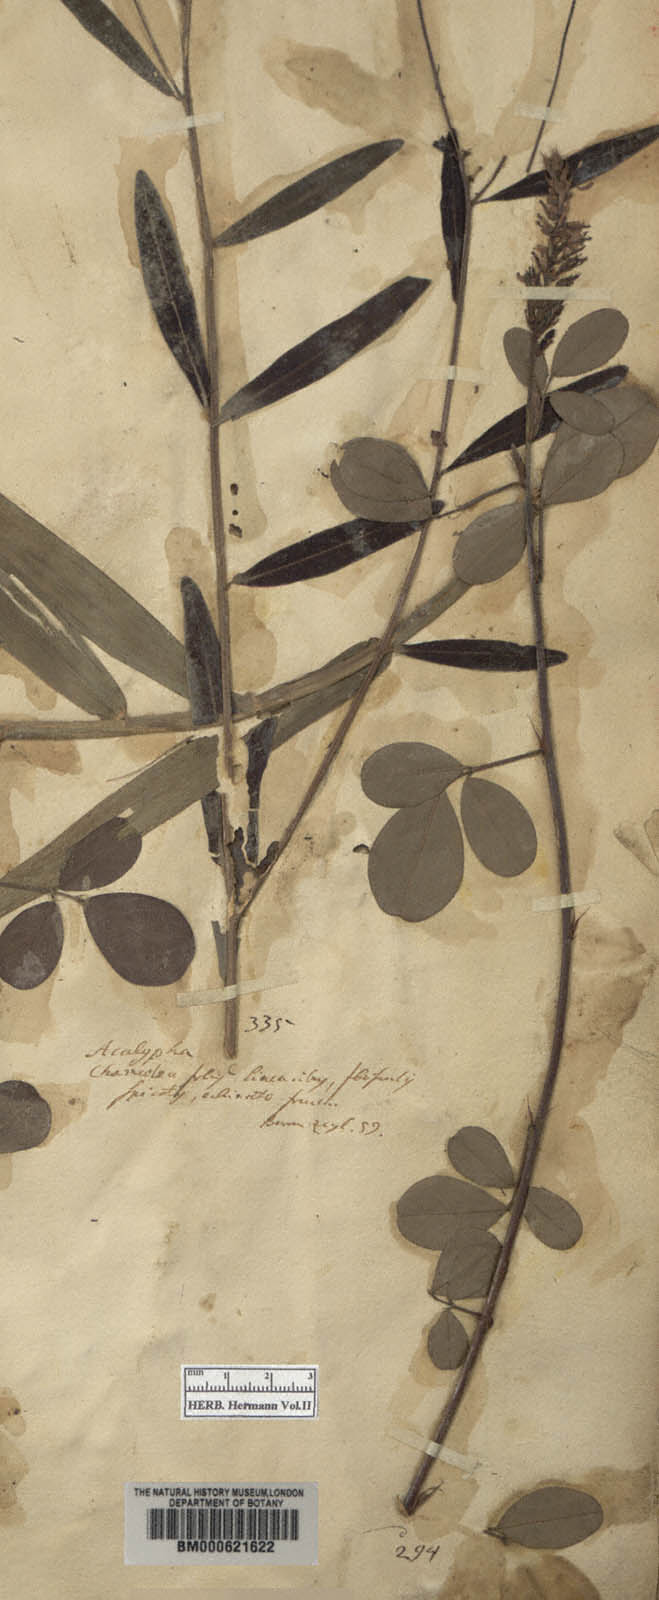 335
Acalypha
Chamelea foliis linearibus, flosculis
spicatis, echinato
Burm zeyl. 59.
mm 1 2 3
HERB. Hermann Vol.II
THE NATURAL HISTORY MUSEUM,LONDON
DEPARTMENT OF BOTANY
BM000621622
294